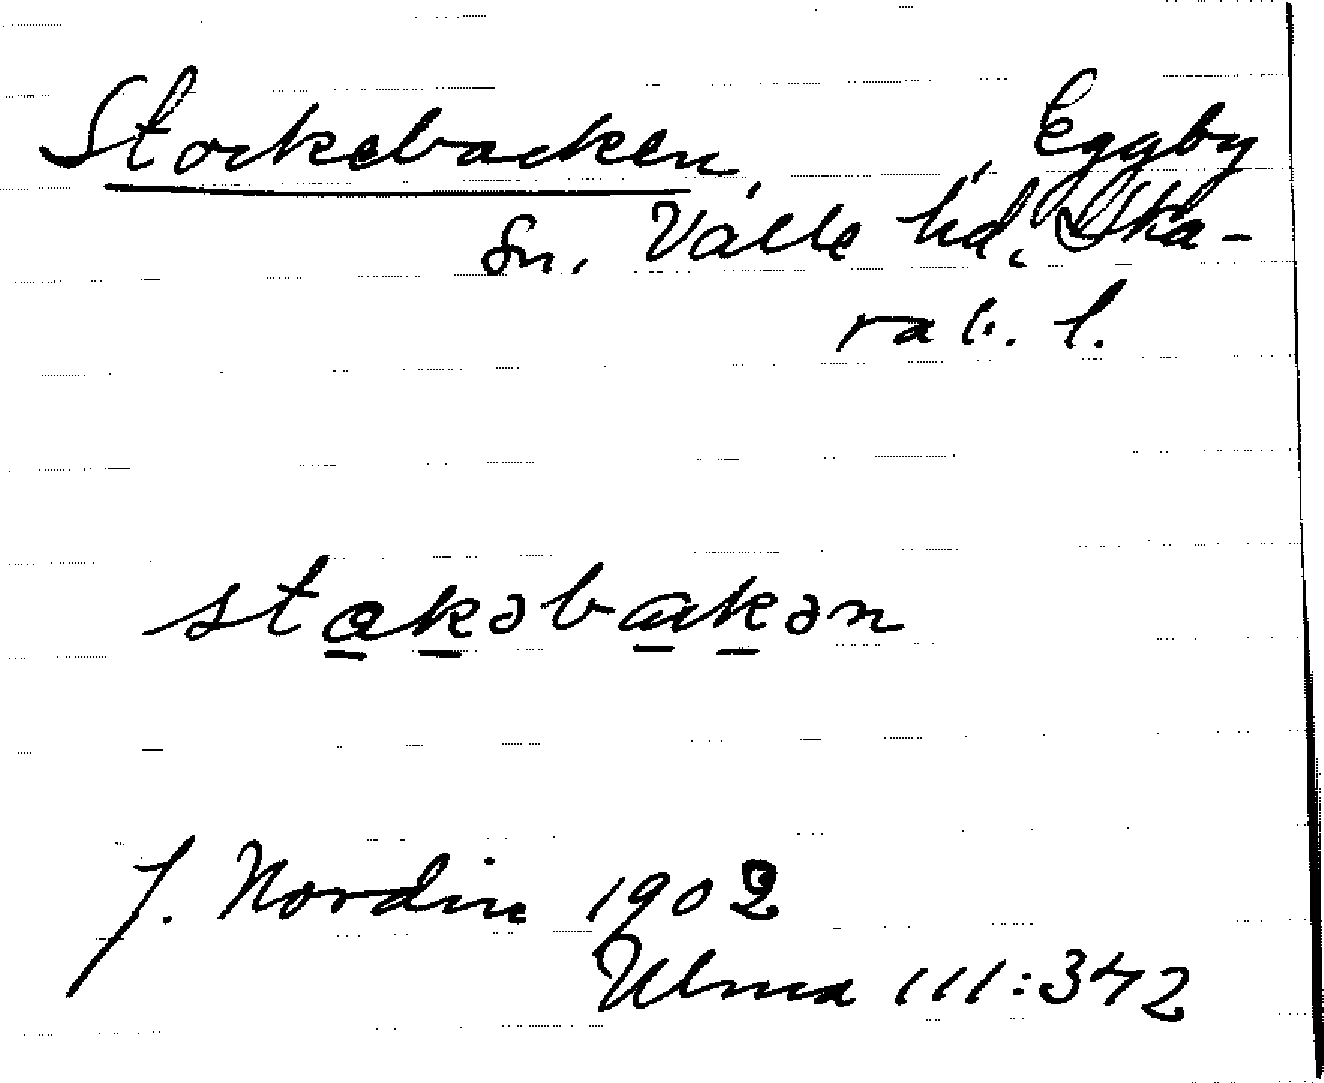 Stockebacken, Eggby
sn. Valle hd, Ska-
rab. l.
stakəbakən
J. Nordin 1902
Ulma 111:342